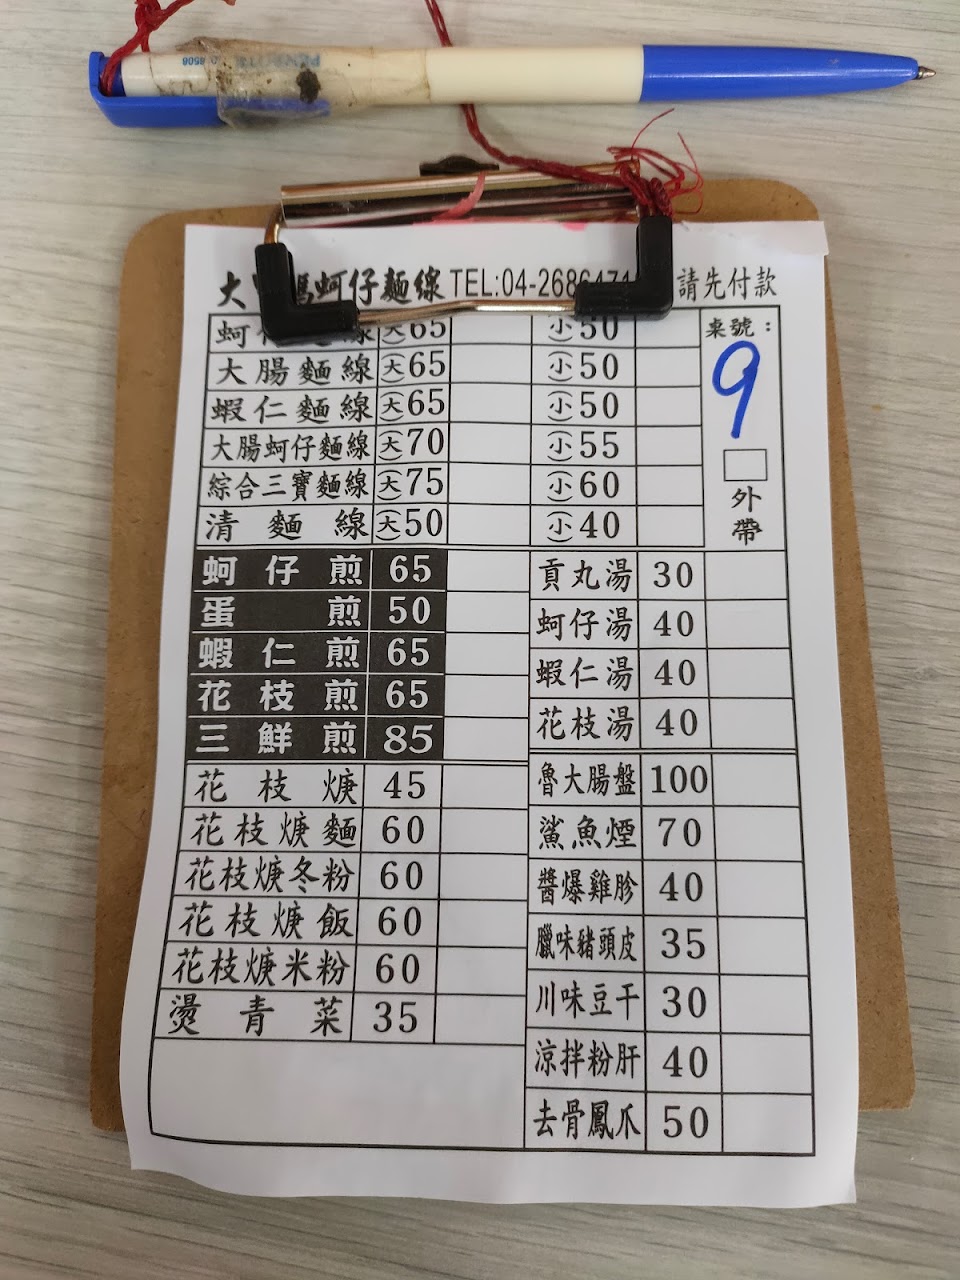 大 蚵仔麵線 TEL:04-268647 請先付款
蚵 線 (大)65 (小)50 桌號：
大腸麵線 (大)65 (小)50 9
蝦仁麵線 (大)65 (小)50
大腸蚵仔麵線 (大)70 (小)55 □
綜合三寶麵線 (大)75 (小)60 外帶
清麵線 (大)50 (小)40
蚵仔煎 65
蛋煎 50
蝦仁煎 65
花枝煎 65
三鮮煎 85
花枝焿 45
花枝焿麵 60
花枝焿冬粉 60
花枝焿飯 60
花枝焿米粉 60
燙青菜 35
貢丸湯 30
蚵仔湯 40
蝦仁湯 40
花枝湯 40
魯大腸盤 100
鯊魚煙 70
醬爆雞胗 40
臘味豬頭皮 35
川味豆干 30
涼拌粉肝 40
去骨鳳爪 50